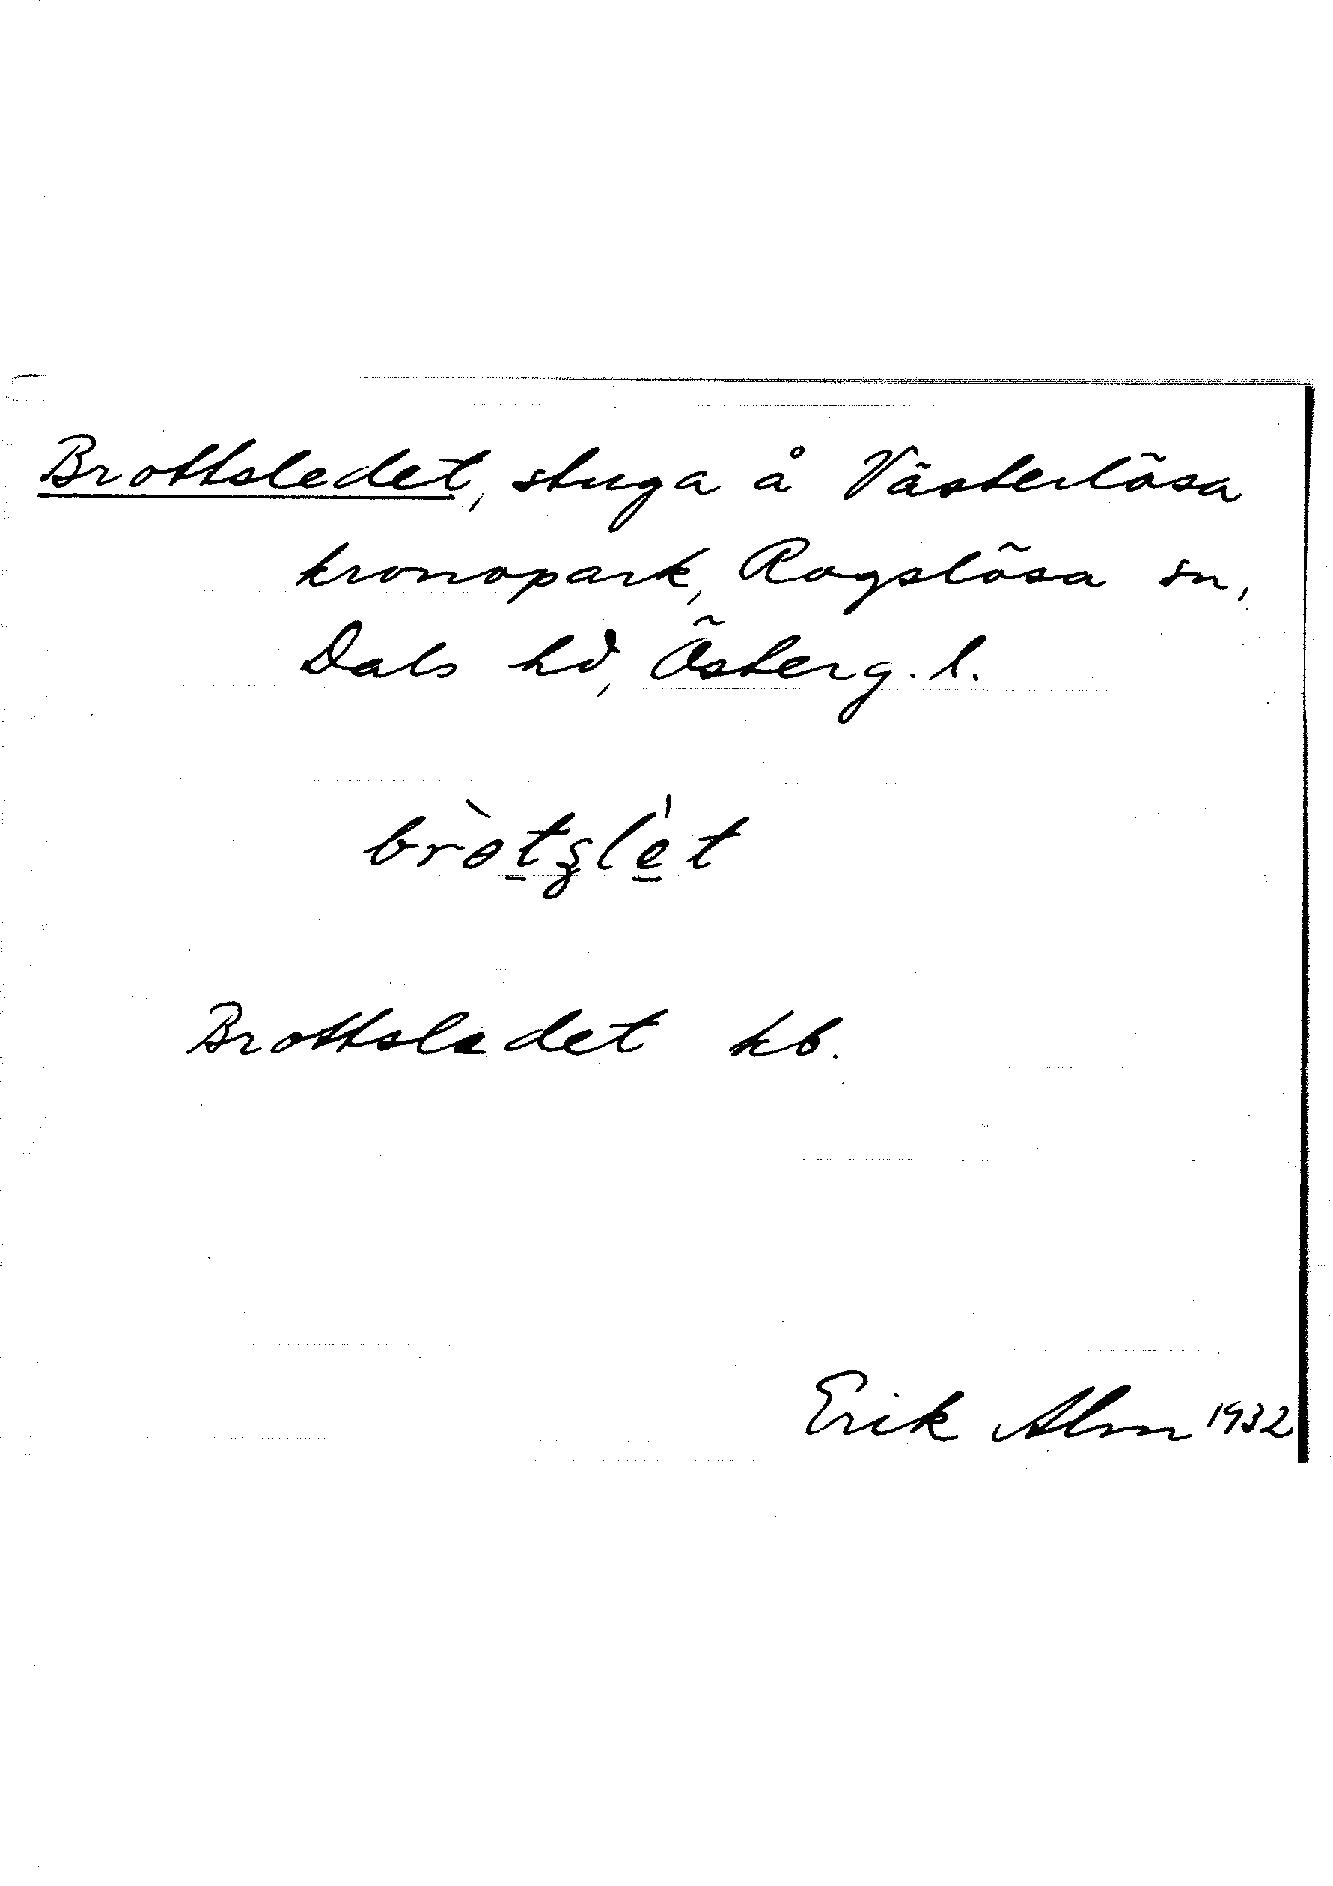 Brottsledet, stuga å Västerlösa
kronopark, Rogslösa sn,
Dals hd, Österg. l.
bròtslét
Brottsledet kb.
Erik Alm 1932